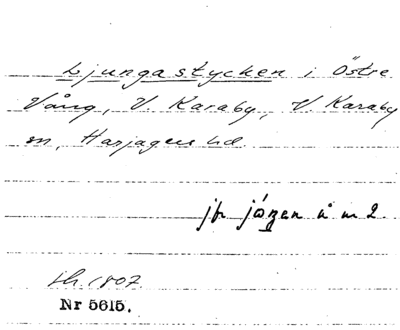 Ljungastycken i Östre
Vång, V. Karaby, V. Karaby
sn, Harjagers hd.
jfr
Lh. 1807
Nr 5615.